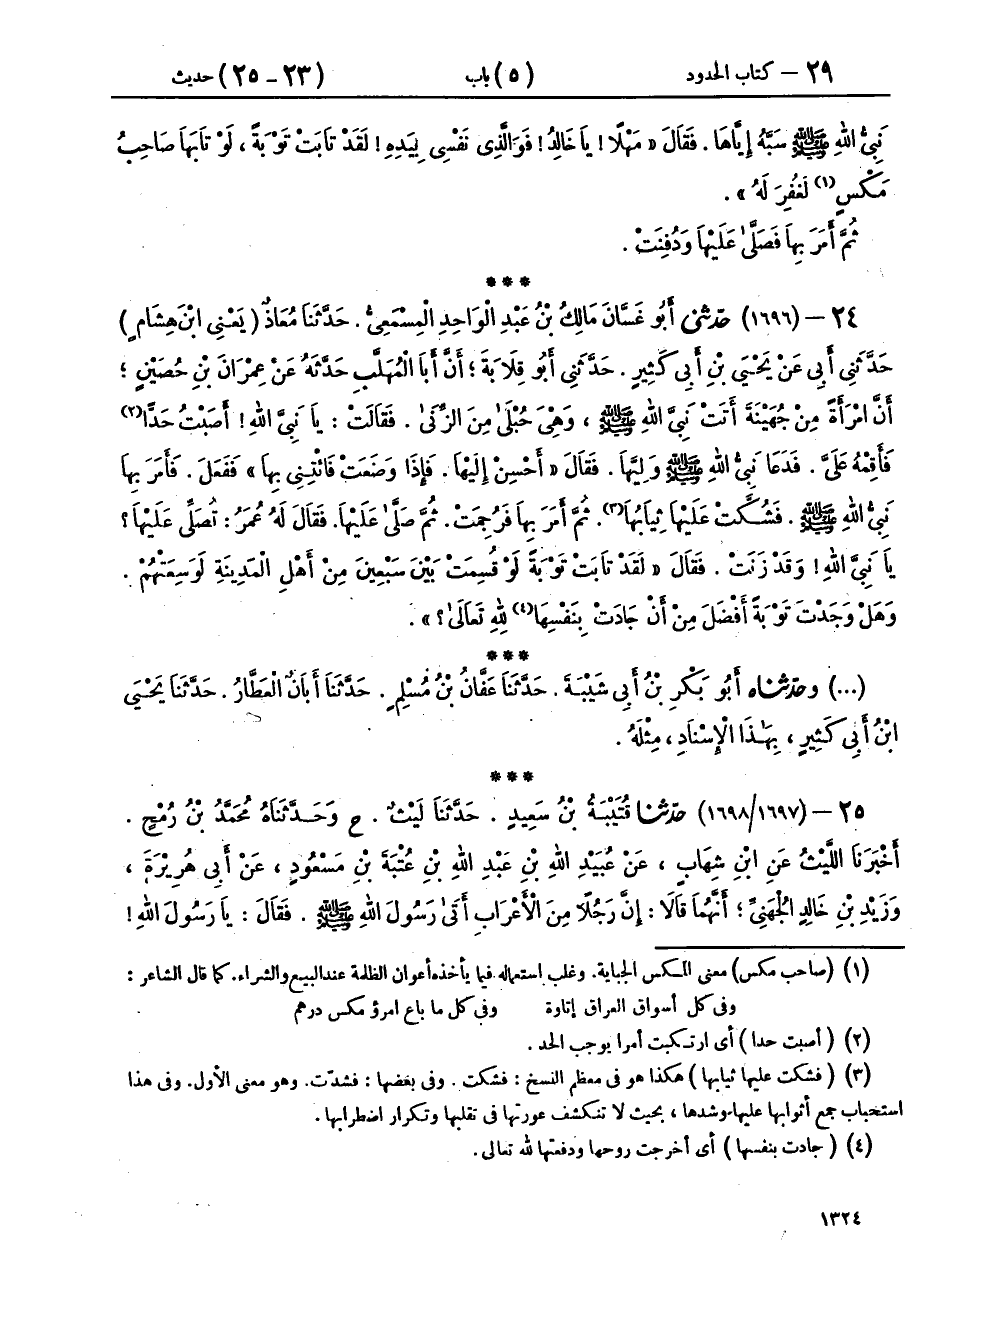 ٢٩ – كتاب الحدود (٥) باب (٢٣ – ٢٥) حديث
نَبِيُّ اللهِ ﷺ سَبَّهُ إِيَّاهَا . فَقَالَ « مَهْلًا ! يَا خَالِدُ ! فَوَالَّذِى نَفْسِى بِيَدِهِ ! لَقَدْ تَابَتْ تَوْبَةً ، لَوْ تَابَهَا صَاحِبُ
مَكْسٍ(١) لَغُفِرَ لَهُ » .
ثُمَّ أَمَرَ بِهَا فَصَلَّىٰ عَلَيْهَا وَدُفِنَتْ .
***
٢٤ – (١٦٩٦) حدّثنى أَبُو غَسَّانَ مَالِكُ بْنُ عَبْدِ الْوَاحِدِ الْمِسْمَعِىُّ . حَدَّثَنَا مُعَاذٌ ( يَعْنِى ابْنَ هِشَامٍ )
حَدَّثَنِى أَبِى عَنْ يَحْيَىٰ بْنِ أَبِى كَثِيرٍ . حَدَّثَنِى أَبُو قِلَابَةَ ؛ أَنَّ أَبَا الْمُهَلَّبِ حَدَّثَهُ عَنْ عِمْرَانَ بْنِ حُصَيْنٍ ؛
أَنَّ امْرَأَةً مِنْ جُهَيْنَةَ أَتَتْ نَبِيَّ اللهِ ﷺ ، وَهِىَ حُبْلَىٰ مِنَ الزِّنَىٰ . فَقَالَتْ : يَا نَبِىَّ اللهِ ! أَصَبْتُ حَدًّا(٢)
فَأَقِمْهُ عَلَىَّ . فَدَعَا نَبِىُّ اللهِ ﷺ وَلِيَّهَا . فَقَالَ « أَحْسِنْ إِلَيْهَا . فَإِذَا وَضَعَتْ فَائْتِنِى بِهَا » فَفَعَلَ . فَأَمَرَ بِهَا
نَبِىُّ اللهِ ﷺ . فَشُكَّتْ عَلَيْهَا ثِيَابُهَا(٣). ثُمَّ أَمَرَ بِهَا فَرُجِمَتْ. ثُمَّ صَلَّىٰ عَلَيْهَا. فَقَالَ لَهُ عُمَرُ : تُصَلِّى عَلَيْهَا ؟
يَا نَبِىَّ اللهِ ! وَقَدْ زَنَتْ . فَقَالَ « لَقَدْ تَابَتْ تَوْبَةً لَوْ قُسِمَتْ بَيْنَ سَبْعِينَ مِنْ أَهْلِ الْمَدِينَةِ لَوَسِعَتْهُمْ .
وَهَلْ وَجَدْتَ تَوْبَةً أَفْضَلَ مِنْ أَنْ جَادَتْ بِنَفْسِهَا(٤) لِلهِ تَعَالَىٰ ؟ » .
***
(...) وحدّثناه أَبُو بَكْرِ بْنُ أَبِى شَيْبَةَ . حَدَّثَنَا عَفَّانُ بْنُ مُسْلِمٍ . حَدَّثَنَا أَبَانٌ الْعَطَّارُ . حَدَّثَنَا يَحْيَىٰ
ابْنُ أَبِى كَثِيرٍ ، بِهَٰذَا الْإِسْنَادِ ، مِثْلَهُ .
***
٢٥ – (١٦٩٧/١٦٩٨) حدّثنا قُتَيْبَةُ بْنُ سَعِيدٍ . حَدَّثَنَا لَيْثٌ . ح وَحَدَّثَنَاهُ مُحَمَّدُ بْنُ رُمْحٍ .
أَخْبَرَنَا اللَّيْثُ عَنِ ابْنِ شِهَابٍ ، عَنْ عُبَيْدِ اللهِ بْنِ عَبْدِ اللهِ بْنِ عُتْبَةَ بْنِ مَسْعُودٍ ، عَنْ أَبِى هُرَيْرَةَ ،
وَزَيْدِ بْنِ خَالِدٍ الْجُهَنِىِّ ؛ أَنَّهُمَا قَالَا : إِنَّ رَجُلًا مِنَ الْأَعْرَابِ أَتَىٰ رَسُولَ اللهِ ﷺ . فَقَالَ : يَا رَسُولَ اللهِ !
(١) (صاحب مكس) معنى المكس الجباية. وغلب استعماله فيما يأخذه أعوان الظلمة عند البيع والشراء. كما قال الشاعر :
وفى كل أسواق العراق إتاوة وفى كل ما باع امرؤ مكس درهم
(٢) ( أصبت حدا ) أى ارتكبت أمرا يوجب الحد .
(٣) ( فشكت عليها ثيابها ) هكذا هو فى معظم النسخ : فشكت . وفى بعضها : فشدّت. وهو معنى الأول. وفى هذا
استحباب جمع أثوابها عليها وشدها ، بحيث لا تنكشف عورتها فى تقلبها وتكرار اضطرابها .
(٤) ( جادت بنفسها ) أى أخرجت روحها ودفعتها لله تعالى .
١٣٢٤